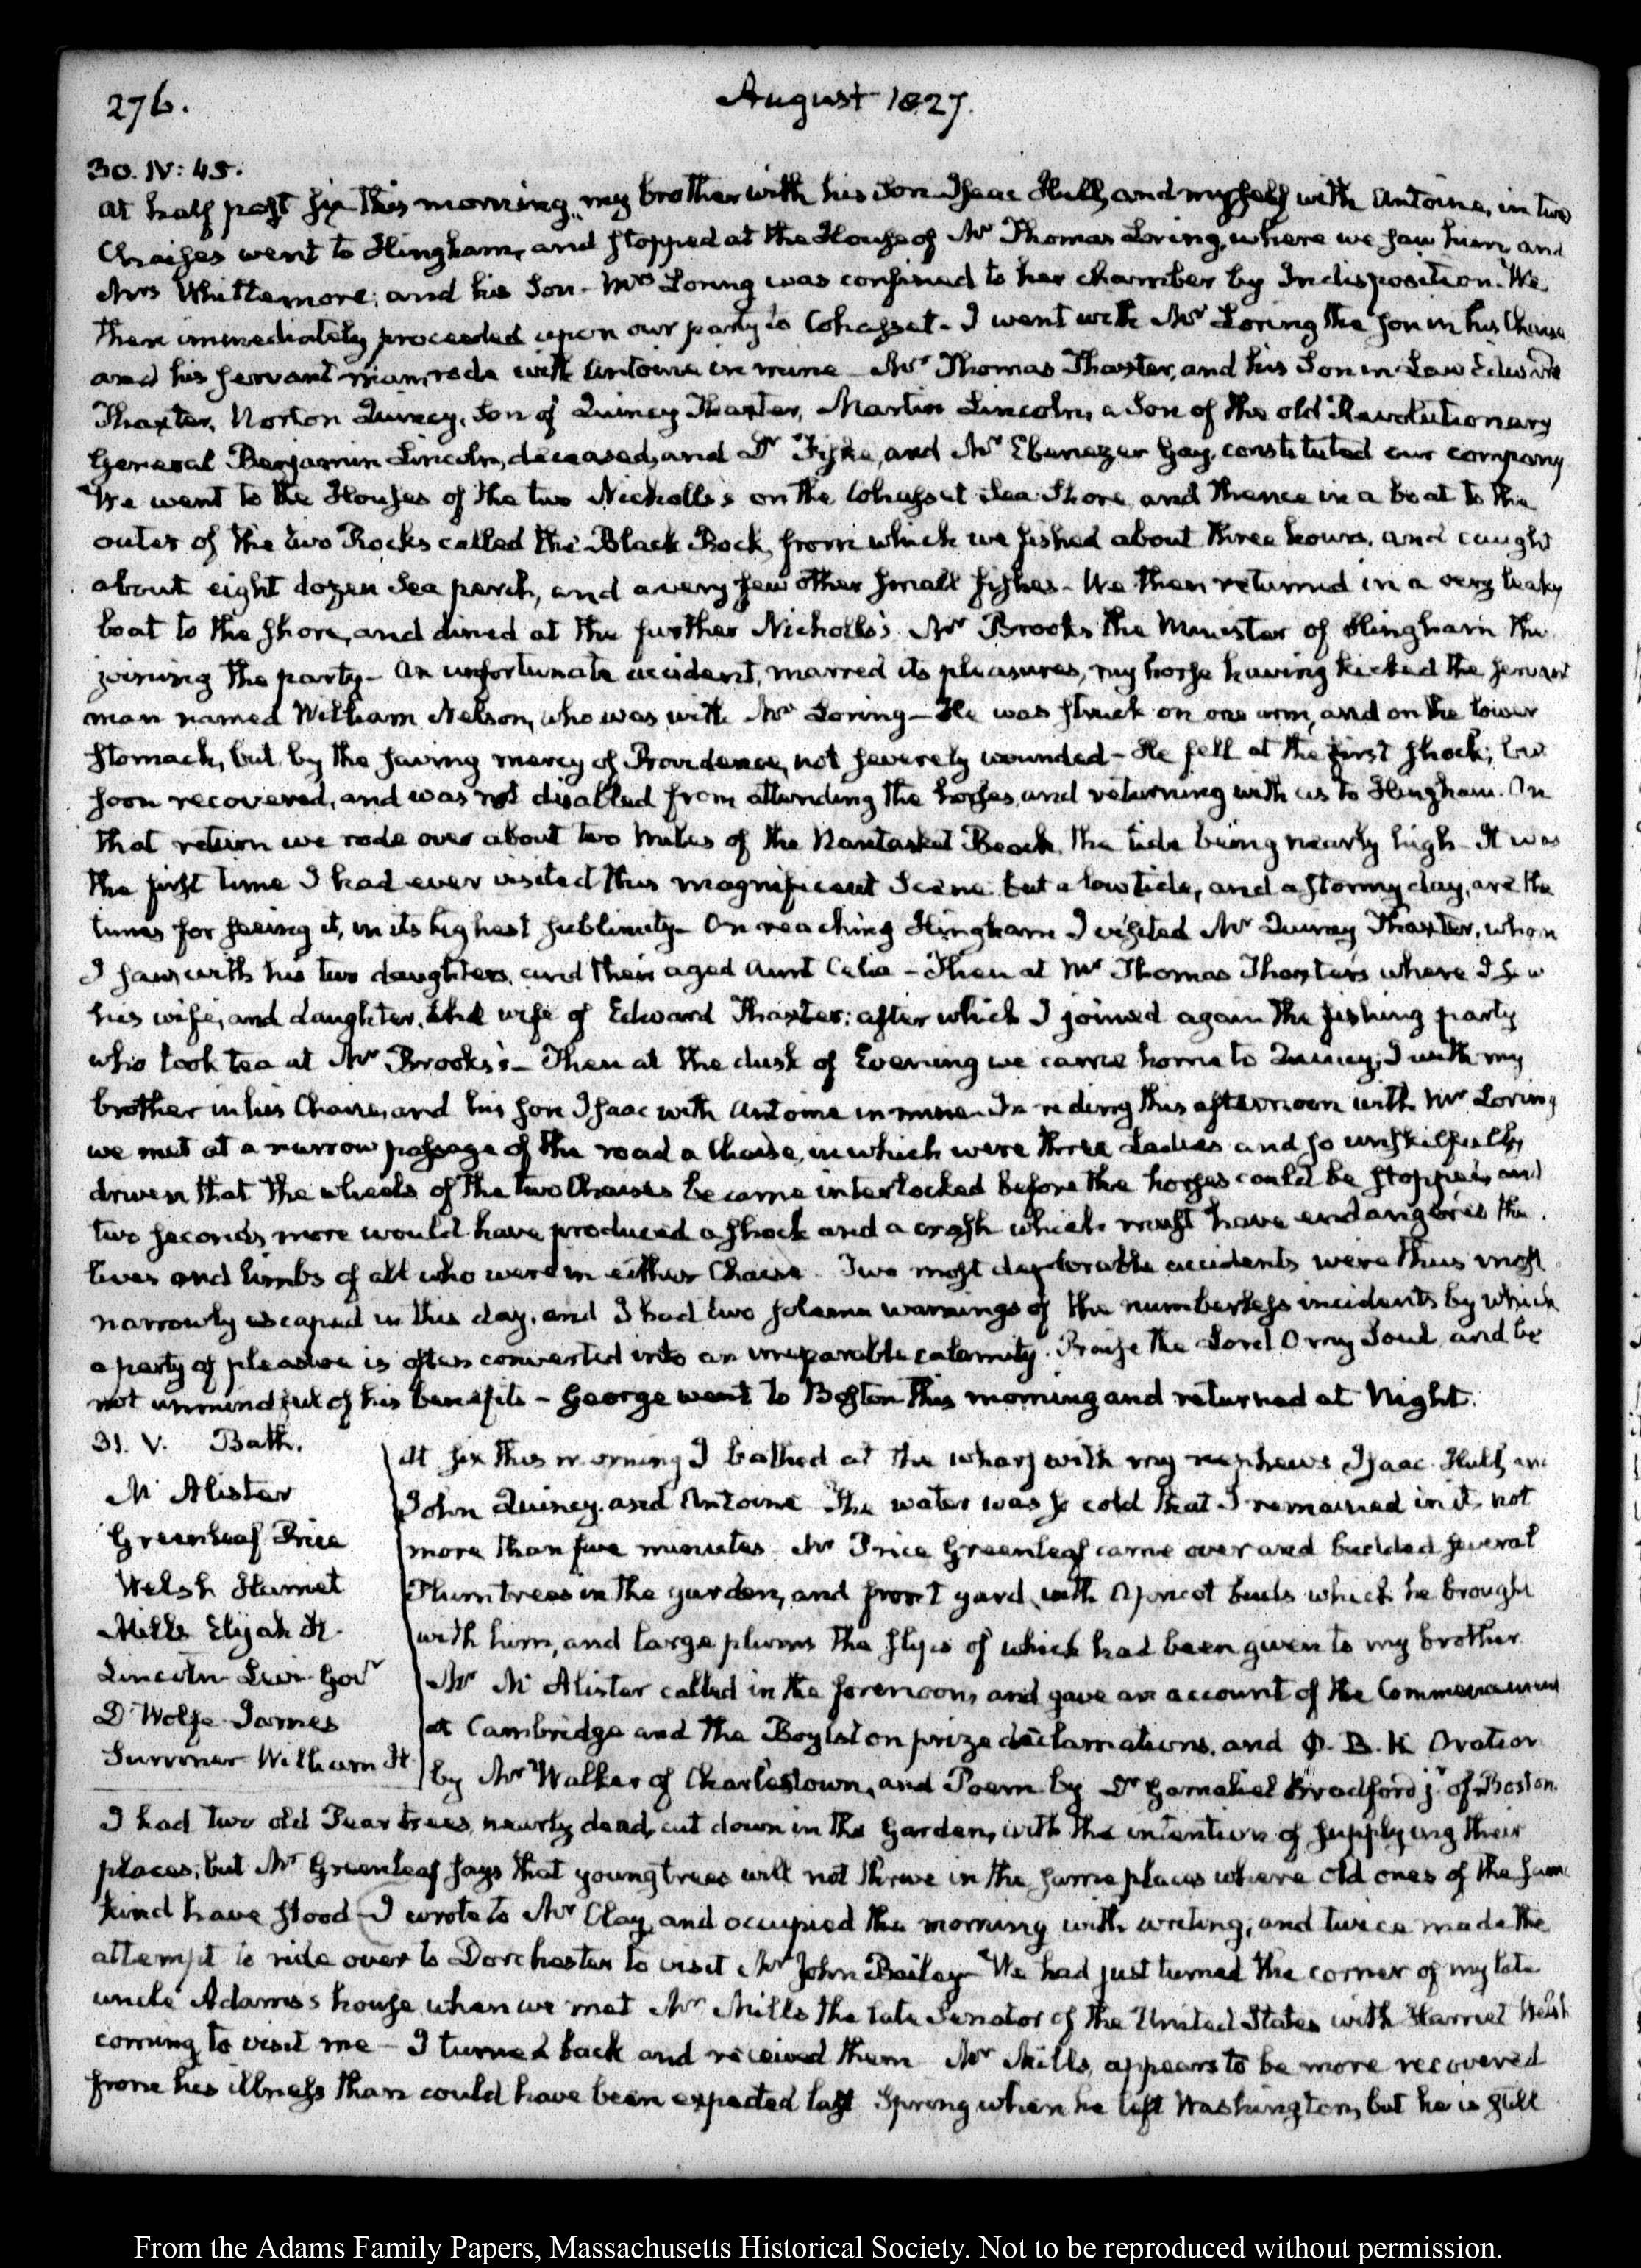 276.
August 1827.
30. IV: 45.
At half past six this morning, my brother with his Son Isaac Hull, and myself with Antoine, in two
Chaises went to Hingham, and stopped at the House of Mr Thomas Loring, where we saw him, and
Mrs Whittemore; and his Son - Mrs Loring was confined to her chamber by Indisposition. We
then immediately proceeded upon our party to Cohasset - I went with Mr Loring the Son in his Chaise
and his servant man, rode with Antoine in mine - Mr Thomas Thaxter, and his Son in Law Edward
Thaxter, Norton Quincy, Son of Quincy Thaxter, Martin Lincoln, a Son of the old Revolutionary
General Benjamin Lincoln, deceased, and Dr Fiske, and Mr Ebenezer Gay, constituted our company
We went to the Houses of the two Nicholls's on the Cohasset Sea Shore and thence in a boat to the
outer of the two Rocks called the Black Rock, from which we fished about three hours, and caught
about eight dozen Sea perch, and a very few other small fishes - We then returned in a very leaky
boat to the shore, and dined at the further Nicholls's Mr Brooks the Minister of Hingham the
joining the party - An unfortunate accident, marred its pleasures, my horse having kicked the servant
man named William Nelson, who was with Mr Loring - He was struck on one arm, and on the lower
stomach, but, by the saving mercy of Providence, not severely wounded - He fell at the first shock; but
soon recovered, and was not disabled from attending the horses, and returning with us to Hingham. On
that return we rode over about two miles of the Nantasket Beach, the tide being nearly high - It was
the first time I had ever visited this magnificent Scene but a low tide, and a stormy day, are the
times for seeing it, in its highest sublimity - On reaching Hingham I visited Mr Quincy Thaxter, whom
I saw, with his two daughters, and their aged Aunt Celia - Then at Mr Thomas Thaxter's where I saw
his wife, and daughter, the wife of Edward Thaxter: after which I joined again the fishing party
who took tea at Mr Brooks's - Then at the dusk of Evening we came home to Quincy; I with my
brother in his Chaise, and his son Isaac with Antoine in mine - In riding this afternoon with Mr Loring
we met at a narrow passage of the road a Chaise, in which were three Ladies and so unskilfully
driven that the wheels of the two Chaises became interlocked before the horses could be stopped, and
two seconds more would have produced a shock and a crash which must have endangered the
lives and limbs of all who were in either Chaise. Two most deplorable accidents were thus most
narrowly escaped in this day, and I had two solemn warnings of the numberless incidents by which
a party of pleasure is often converted into an irreparable calamity. Praise the Lord O my Soul and be
not unmindful of his benefits - George went to Boston this morning and returned at Night.
31. V. Bath.
Mc Alister
Greenleaf Price
Welsh Harriet
Mills Elijah H.
Lincoln Levi Govr
D'Wolfe James
Sumner William H.
At six this morning I bathed at the wharf with my nephews Isaac Hull, and
John Quincy, and Antoine The water was so cold that I remained in it not
more than five minutes. Mr Price Greenleaf came over and budded several
Plum trees in the garden, and front yard, with Apricot buds which he brought
with him, and large plums the slips of which had been given to my brother
Mr Mc Alister called in the forenoon, and gave an account of the Commencement
at Cambridge and the Boylston prize declamations, and Φ. B. K Oration
by Mr Walker of Charlestown, and Poem by Dr Gamaliel Bradford jr of Boston.
I had two old Pear trees, nearly dead, cut down in the Garden, with the intention of supplying their
places; but Mr Greenleaf says that young trees will not thrive in the same places where old ones of the same
kind have stood - I wrote to Mr Clay, and occupied the morning with writing; and twice made the
attempt to ride over to Dorchester to visit Mr John Bailey - We had just turned the corner of my late
uncle Adams's house, when we met Mr Mills the late Senator of the United States with Harriet Welsh
coming to visit me - I turned back and received them Mr Mills, appears to be more recovered
from his illness than could have been expected last Spring when he left Washington, but he is still
From the Adams Family Papers, Massachusetts Historical Society. Not to be reproduced without permission.